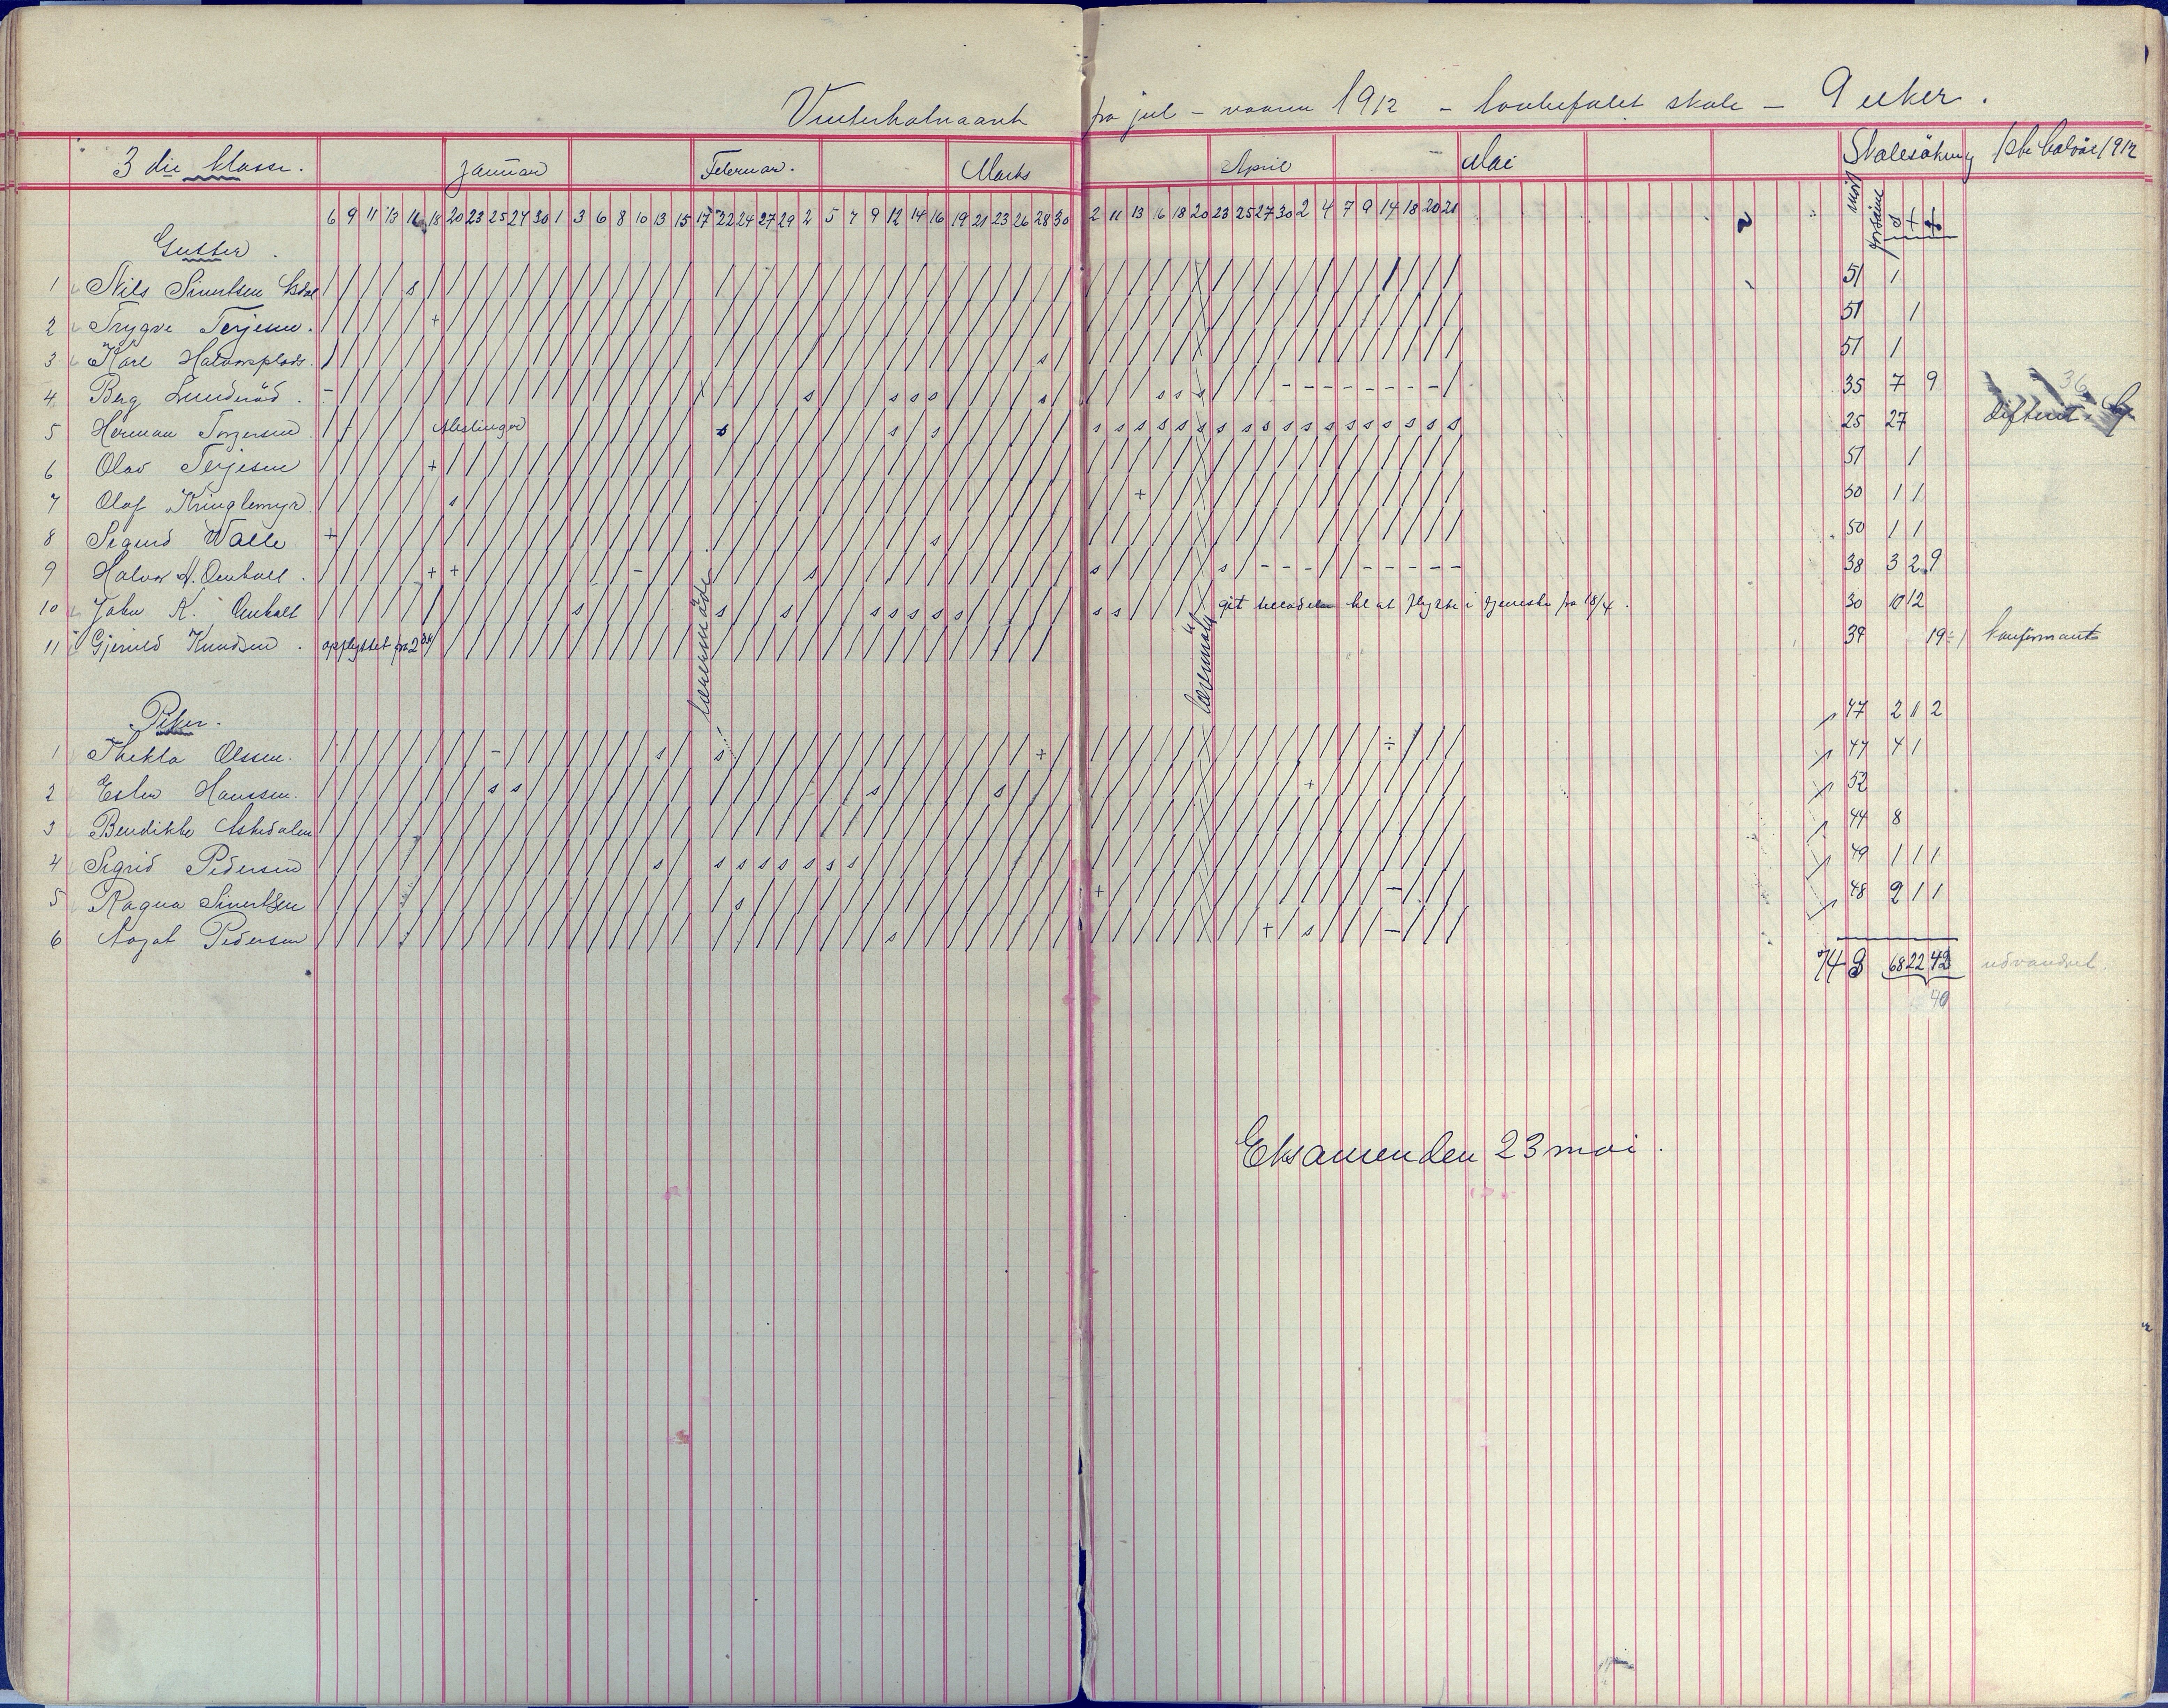 Vinterhalvaaret fra jul - vaaren 1912 - lovbefalet skole - 9 uker.
3 die klasse. Januar Februar. Marts April Mai Skolesökning 1ste halvår 1912
6 9 11 13 16 18 20 23 25 27 30 1 3 6 8 10 13 15 17 22 24 27 29 2 5 7 9 12 14 16 19 21 23 26 28 30 2 11 13 16 18 20 23 25 27 30 2 4 7 9 14 18 20 21 mött forsömt s + ÷
Gutter.
1 Nils Sivertsen 51 1
2 Trygve Terjesen. 51 1
3 Kåre 51 1
4 Berg Lunderöd. 35 7 9
5 Herman Torjersen 25 27 difterit
6 Olav Terjesen 51 1
7 Olaf Kringlemyr. 50 1 1
8 Sigurd Walle 50 1 1
9 Halvor A. Omholt. 38 3 2 9
10 John K. Omholt git til at flytte i tjeneste fra 18/4. 30 10 12
11 Gjeruld Knudsen. opflyttet fra 2den 39 19 ÷ 1 konfirmant
lærermöte
lærermöte
Piker. 47 2 11 2
1 Thekla Olssen. 47 4 1
2 Ester Hanssen. 52
3 Bendikte Askedalen 44 8
4 Sigrid Pedersen 49 1 1 1
5 Ragna Sivertsen 48 2 1 1
6 Aagot Pedersen
743 68 22 42 udvandret.
40
Eksamen den 23 mai.